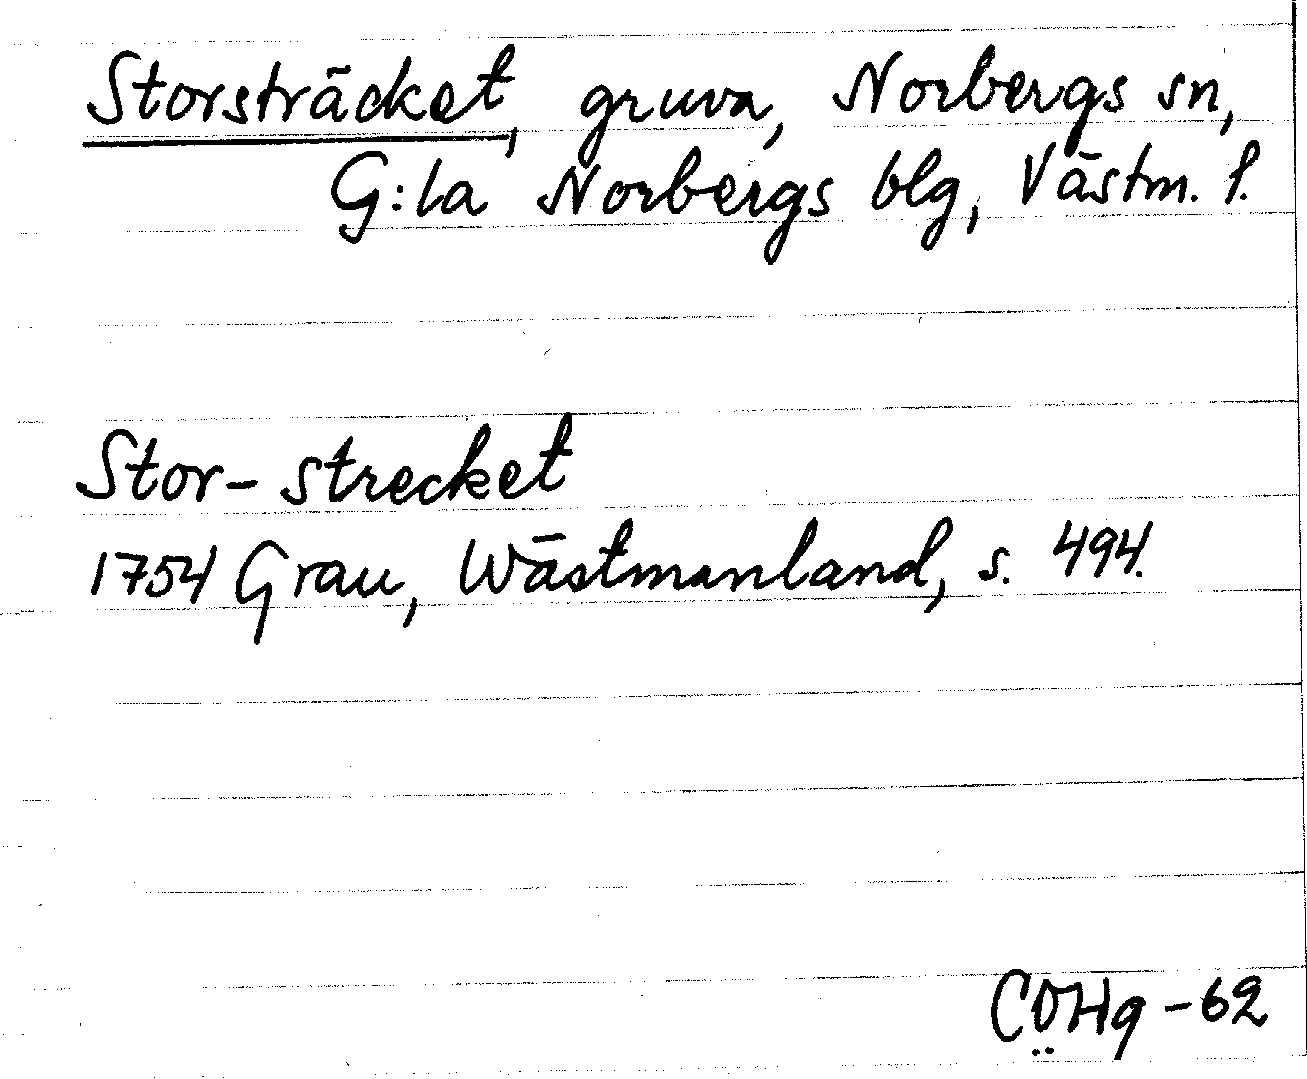 Storsträcket, gruva, Norbergs sn,
G:la Norbergs blg, Västm. l.
Stor-strecket
1754 Grau, Wästmanland, s. 494.
CÖHg -62